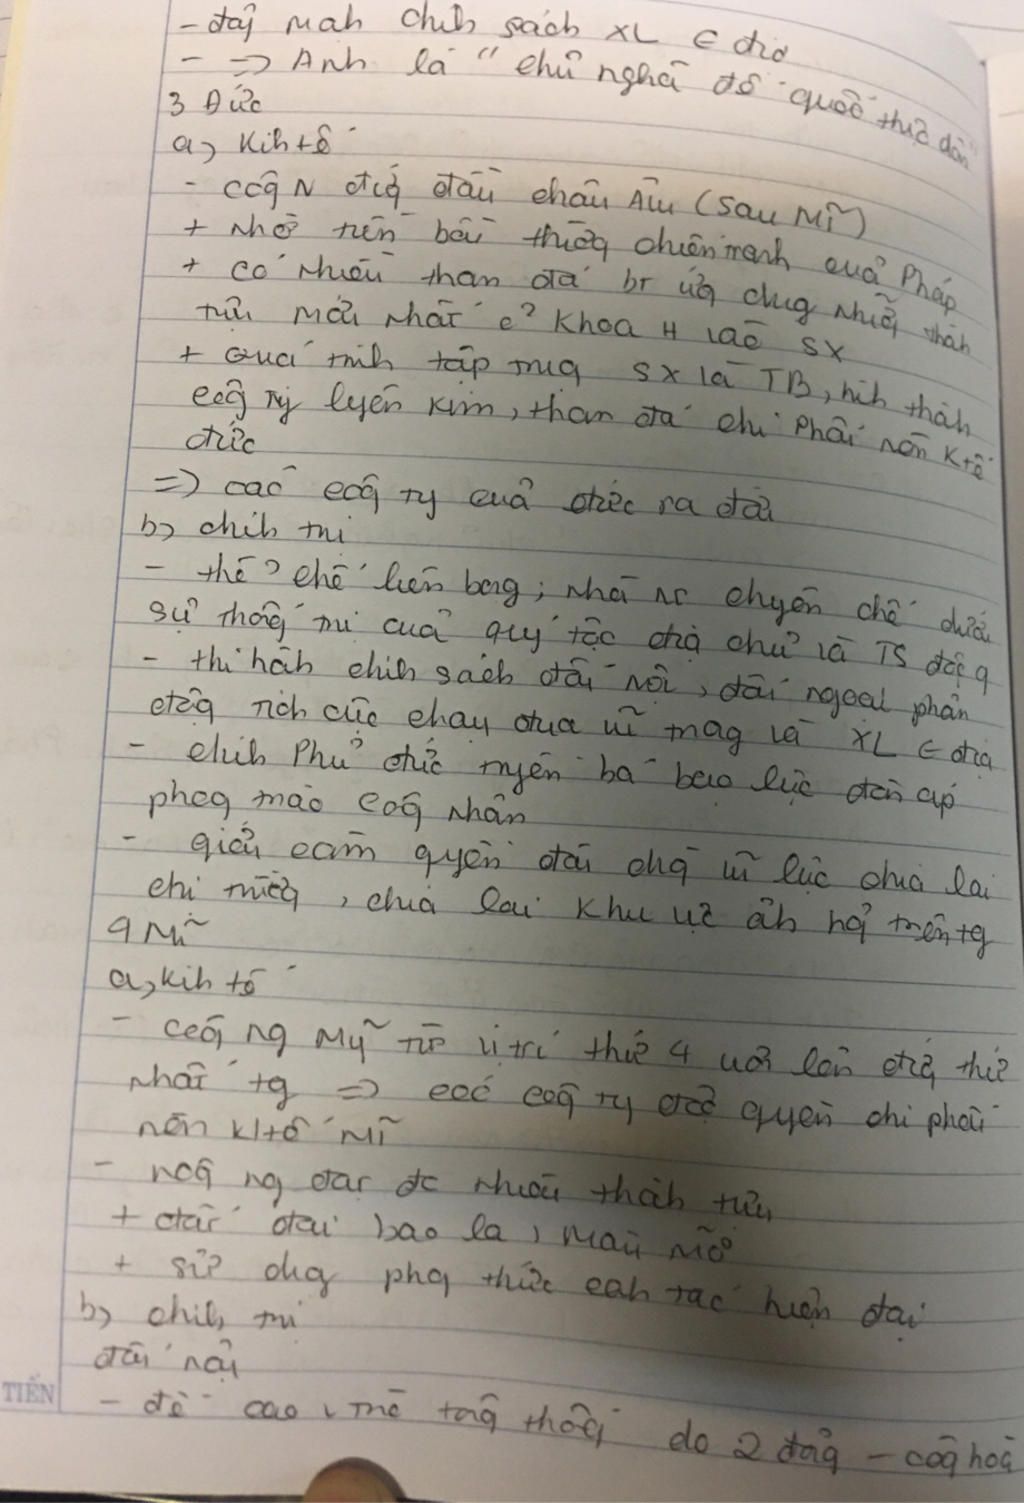 - đẩy mah chíh sách XL ∈ địa
- => Anh là "chủ nghĩa đế quốc thực dân"
3 Đức
a, Kih tế
- Côg N đứg đầu châu Âu (sau Mĩ)
+ Nhờ tiền bồi thườg chiến tranh của Pháp
+ có nhiều than đá bt ứg dụg nhữg thàh
tựu mới nhất c² khoa H vào SX
+ Quá trìh tập trug SX và TB, hìh thàh
côg ty luyện kim, than đá chi phối nền Ktế
đức
=> các côg ty của đức ra đời
b, chíh trị
- thể chế liên bag; Nhà nc chyên chế dưới
sự thốg trị của quý tộc địa chủ và TS độc q
- thi hàh chíh sách đối nội, đối ngoại phản
độg tích cực chạy đua vũ trag và XL ∈ địa
- chíh Phủ đức tuyên bố bạo lực đàn áp
phog trào côg Nhân
- giới cầm quyền đòi dùg vũ lực chia lại
thị trườg, chia lại Khu vực ảh hg trên tg
4 Mĩ
a, kih tế
- Côg ng Mỹ từ vị trí thứ 4 vơn lên đứg thứ
Nhất tg => các côg ty quyền chi phối
nền Ktế Mĩ
- nôg ng đạt đc nhiều thàh tựu
+ đất đai bao la, màu Mỡ
+ sử dụg phg thức cah tác hiện đại
b, chíh trị
đối nội
TIẾN
- đề cao tổg thốg do 2 đảg - côg hoà